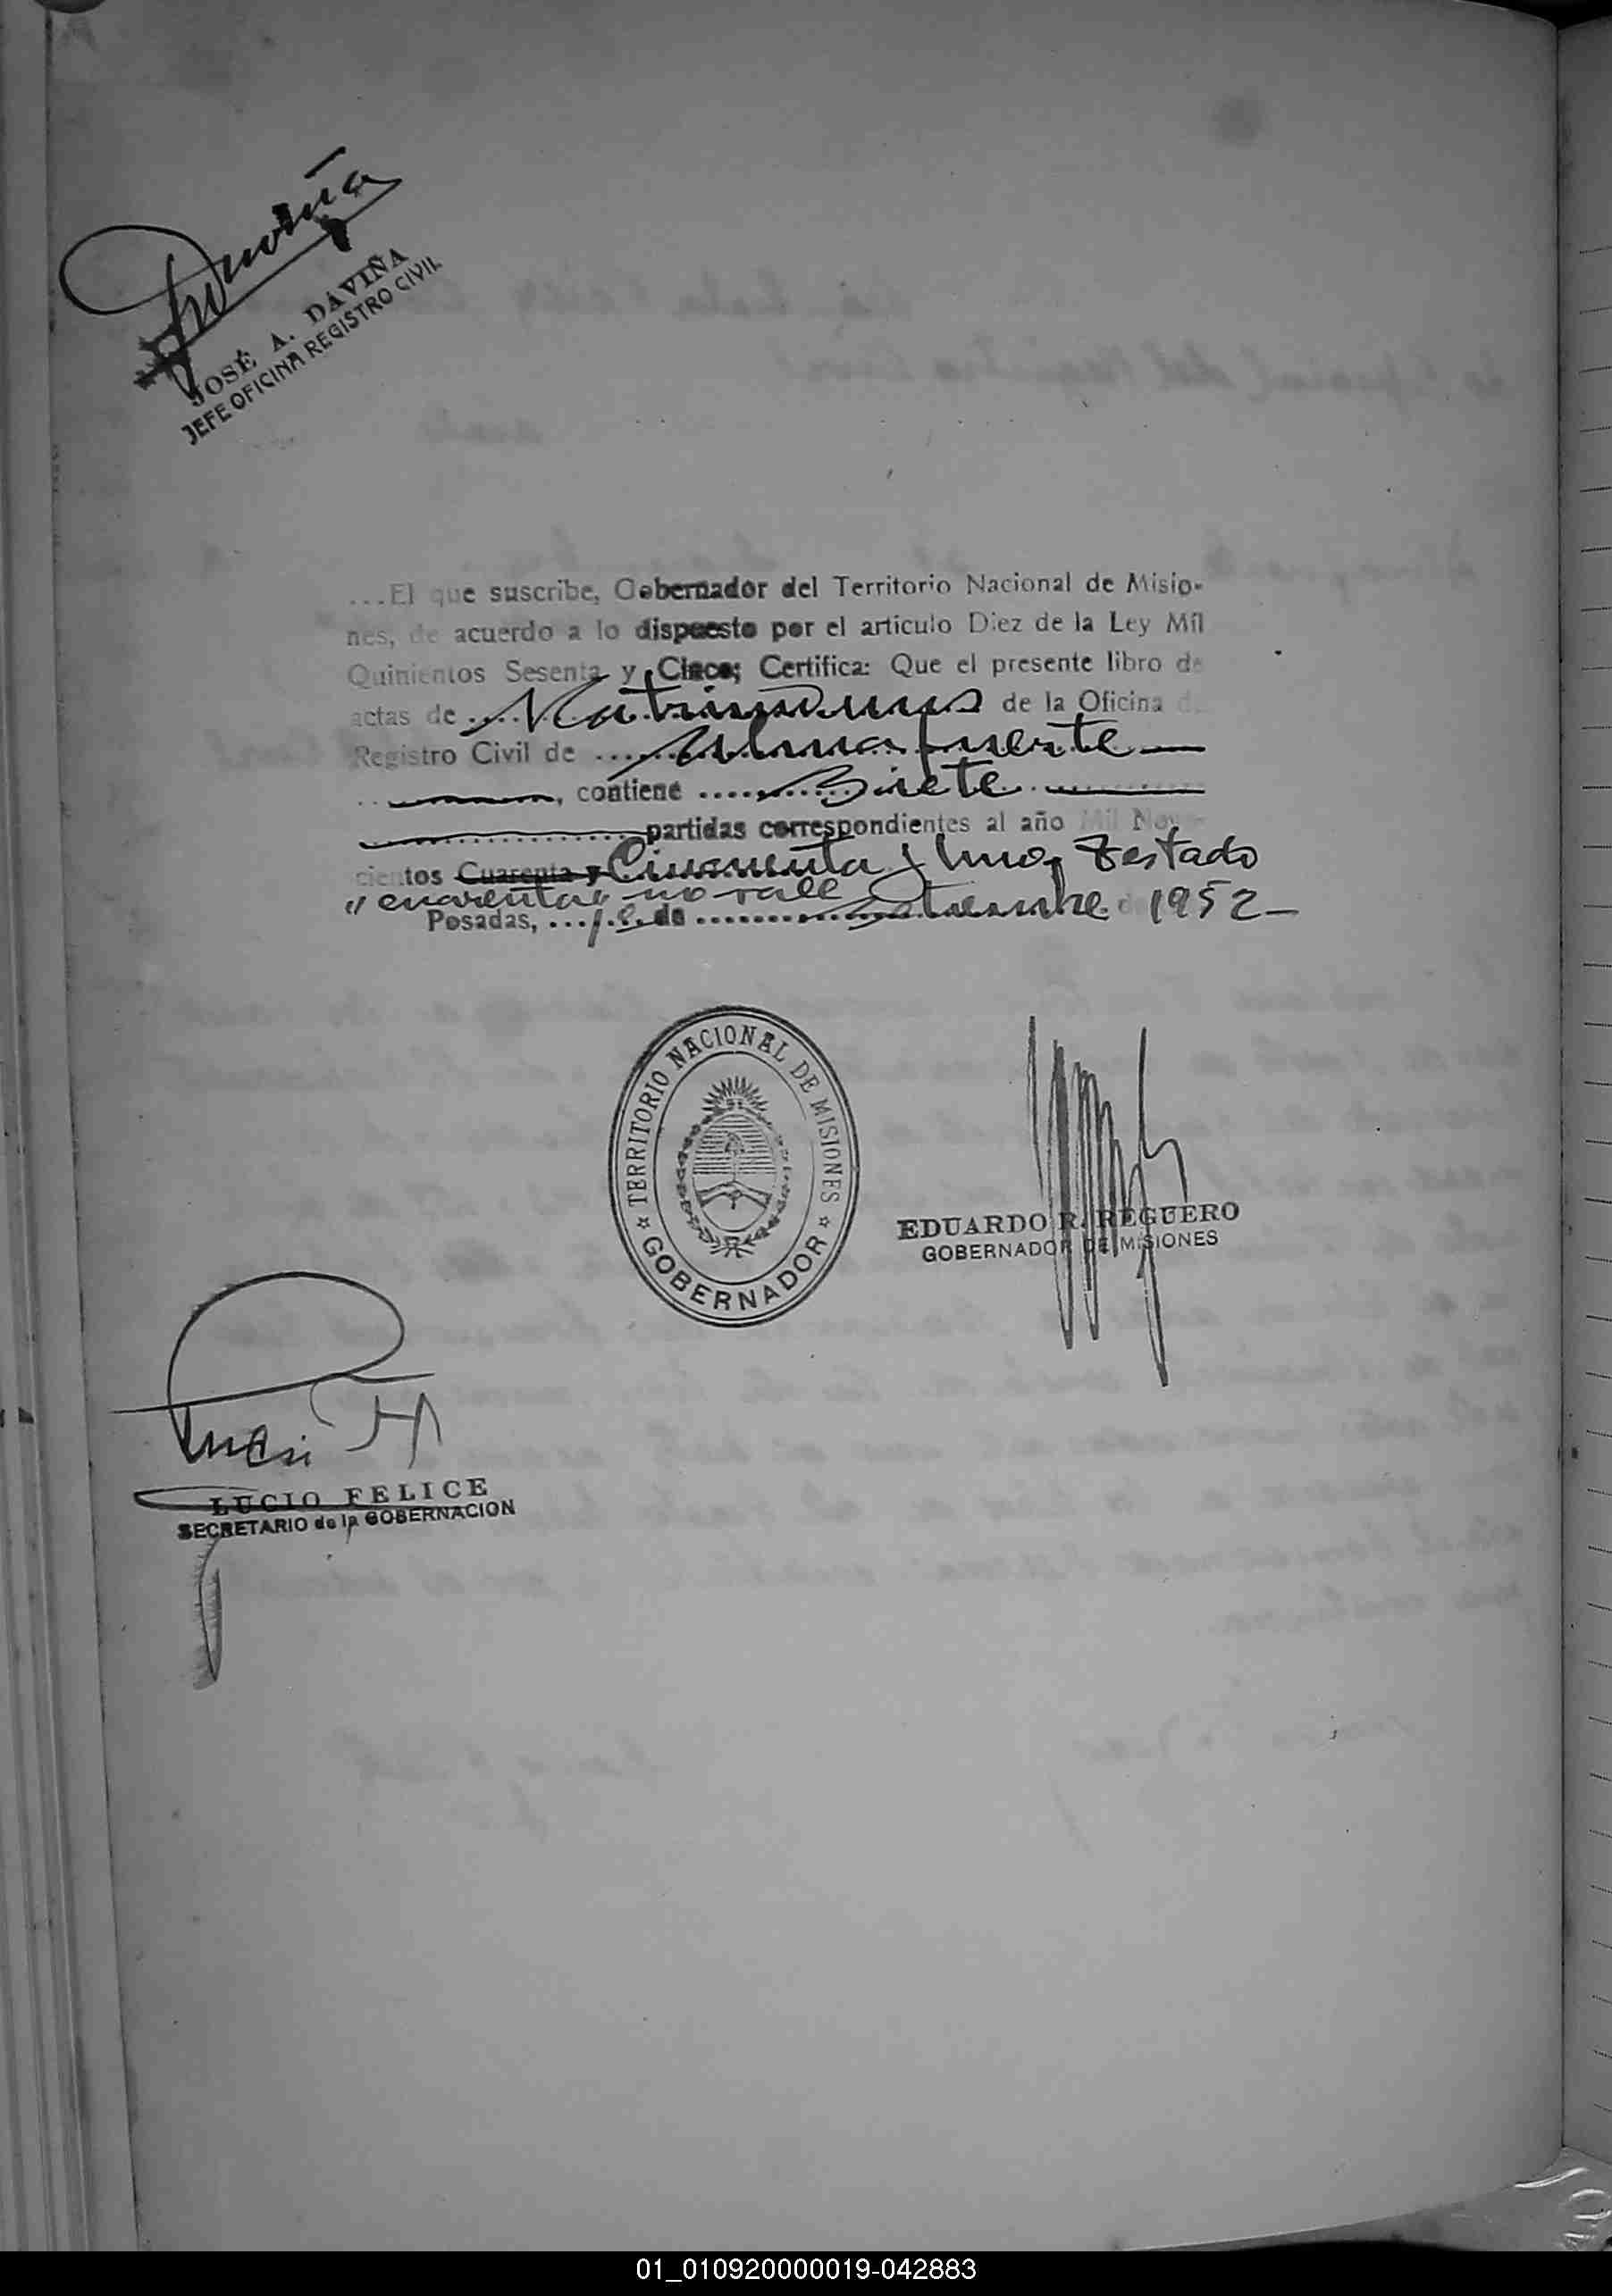 JOSÉ A. DAVIÑA
JEFE OFICINA REGISTRO CIVIL
...El que suscribe, Gobernador del Territorio Nacional de Misio-
nes, de acuerdo a lo dispuesto por el articulo Diez de la Ley Mil
Quinientos Sesenta y Cinco; Certifica: Que el presente libro de
actas de .... Matrimonios de la Oficina de
Registro Civil de ...... Almafuerte
, contiene ........ Siete
partidas correspondientes al año Mil Nove-
cientos Cuarenta y Cincuenta y Uno, Testado
"cuarenta" no vale
Posadas, ... de ........ Setiembre de 1952-
TERRITORIO NACIONAL DE MISIONES
GOBERNADOR
EDUARDO R. REGUERO
GOBERNADOR DE MISIONES
LUCIO FELICE
SECRETARIO de la GOBERNACION
01_010920000019-042883